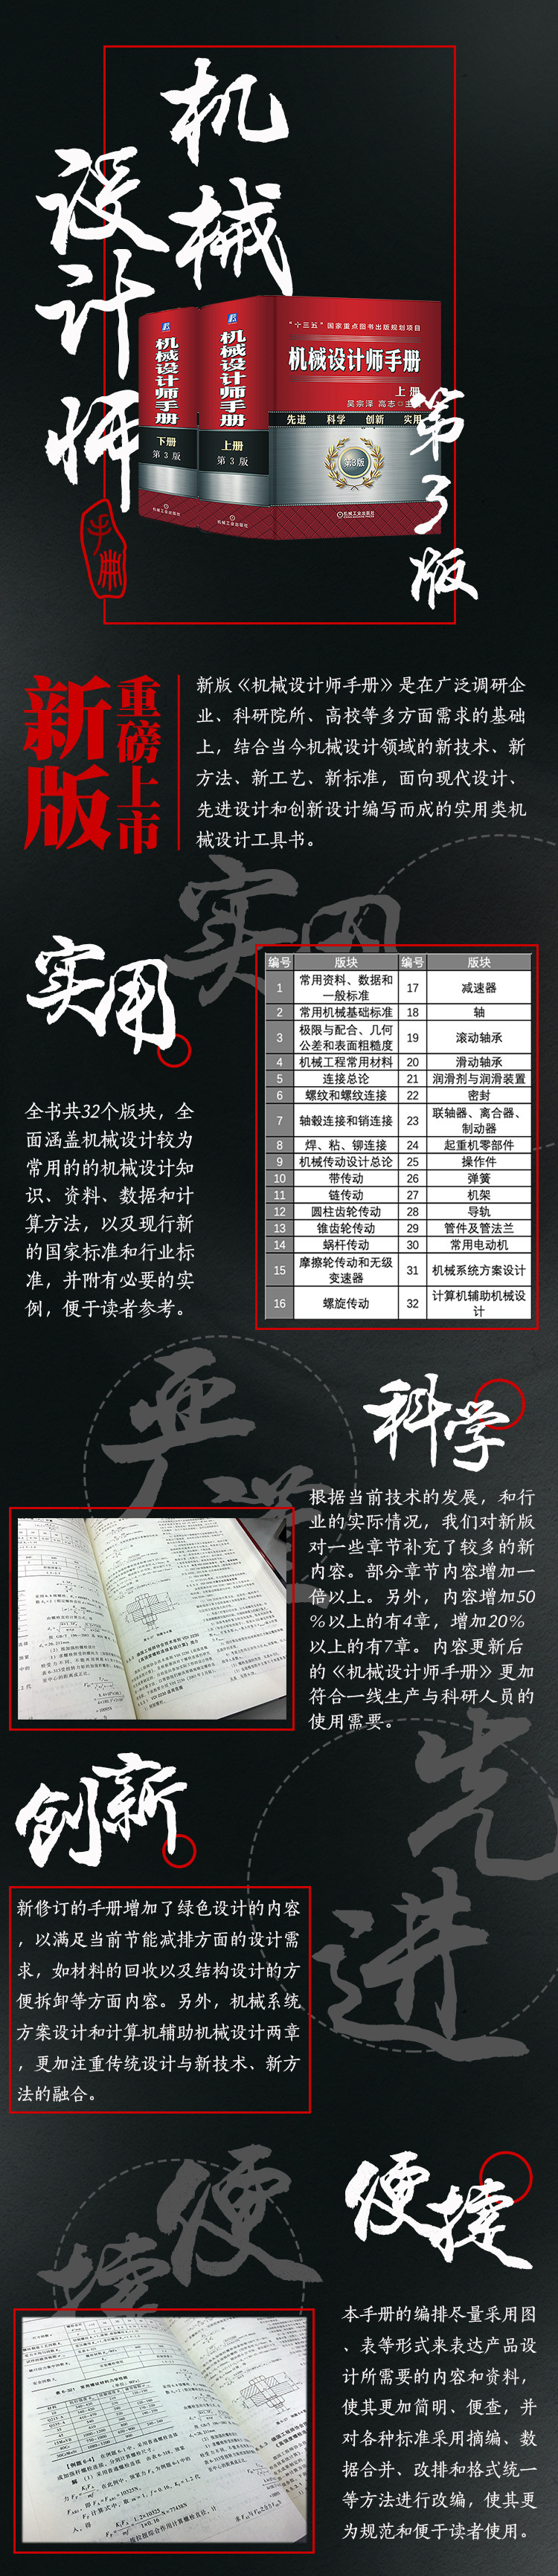 机械
设计师
手册
第3版
机械设计师手册
下册
第3版
机械设计师手册
上册
第3版
“十三五”国家重点图书出版规划项目
机械设计师手册
上册
吴宗泽 高志
先进 科学 创新 实用
第3版
机械工业出版社
新版
重磅上市
新版《机械设计师手册》是在广泛调研企
业、科研院所、高校等多方面需求的基础
上，结合当今机械设计领域的新技术、新
方法、新工艺、新标准，面向现代设计、
先进设计和创新设计编写而成的实用类机
械设计工具书。
实用
实用
全书共32个版块，全
面涵盖机械设计较为
常用的的机械设计知
识、资料、数据和计
算方法，以及现行新
的国家标准和行业标
准，并附有必要的实
例，便于读者参考。
编号 版块 编号 版块
1 常用资料、数据和一般标准 17 减速器
2 常用机械基础标准 18 轴
3 极限与配合、几何公差和表面粗糙度 19 滚动轴承
4 机械工程常用材料 20 滑动轴承
5 连接总论 21 润滑剂与润滑装置
6 螺纹和螺纹连接 22 密封
7 轴毂连接和销连接 23 联轴器、离合器、制动器
8 焊、粘、铆连接 24 起重机零部件
9 机械传动设计总论 25 操作件
10 带传动 26 弹簧
11 链传动 27 机架
12 圆柱齿轮传动 28 导轨
13 锥齿轮传动 29 管件及管法兰
14 蜗杆传动 30 常用电动机
15 摩擦轮传动和无级变速器 31 机械系统方案设计
16 螺旋传动 32 计算机辅助机械设计
严谨
科学
根据当前技术的发展，和行
业的实际情况，我们对新版
对一些章节补充了较多的新
内容。部分章节内容增加一
倍以上。另外，内容增加50
%以上的有4章，增加20%
以上的有7章。内容更新后
的《机械设计师手册》更加
符合一线生产与科研人员的
使用需要。
先进
创新
新修订的手册增加了绿色设计的内容
，以满足当前节能减排方面的设计需
求，如材料的回收以及结构设计的方
便拆卸等方面内容。另外，机械系统
方案设计和计算机辅助机械设计两章
，更加注重传统设计与新技术、新方
法的融合。
便捷
便捷
本手册的编排尽量采用图
、表等形式来表达产品设
计所需要的内容和资料，
使其更加简明、便查，并
对各种标准采用摘编、数
据合并、改排和格式统一
等方法进行改编，使其更
为规范和便于读者使用。